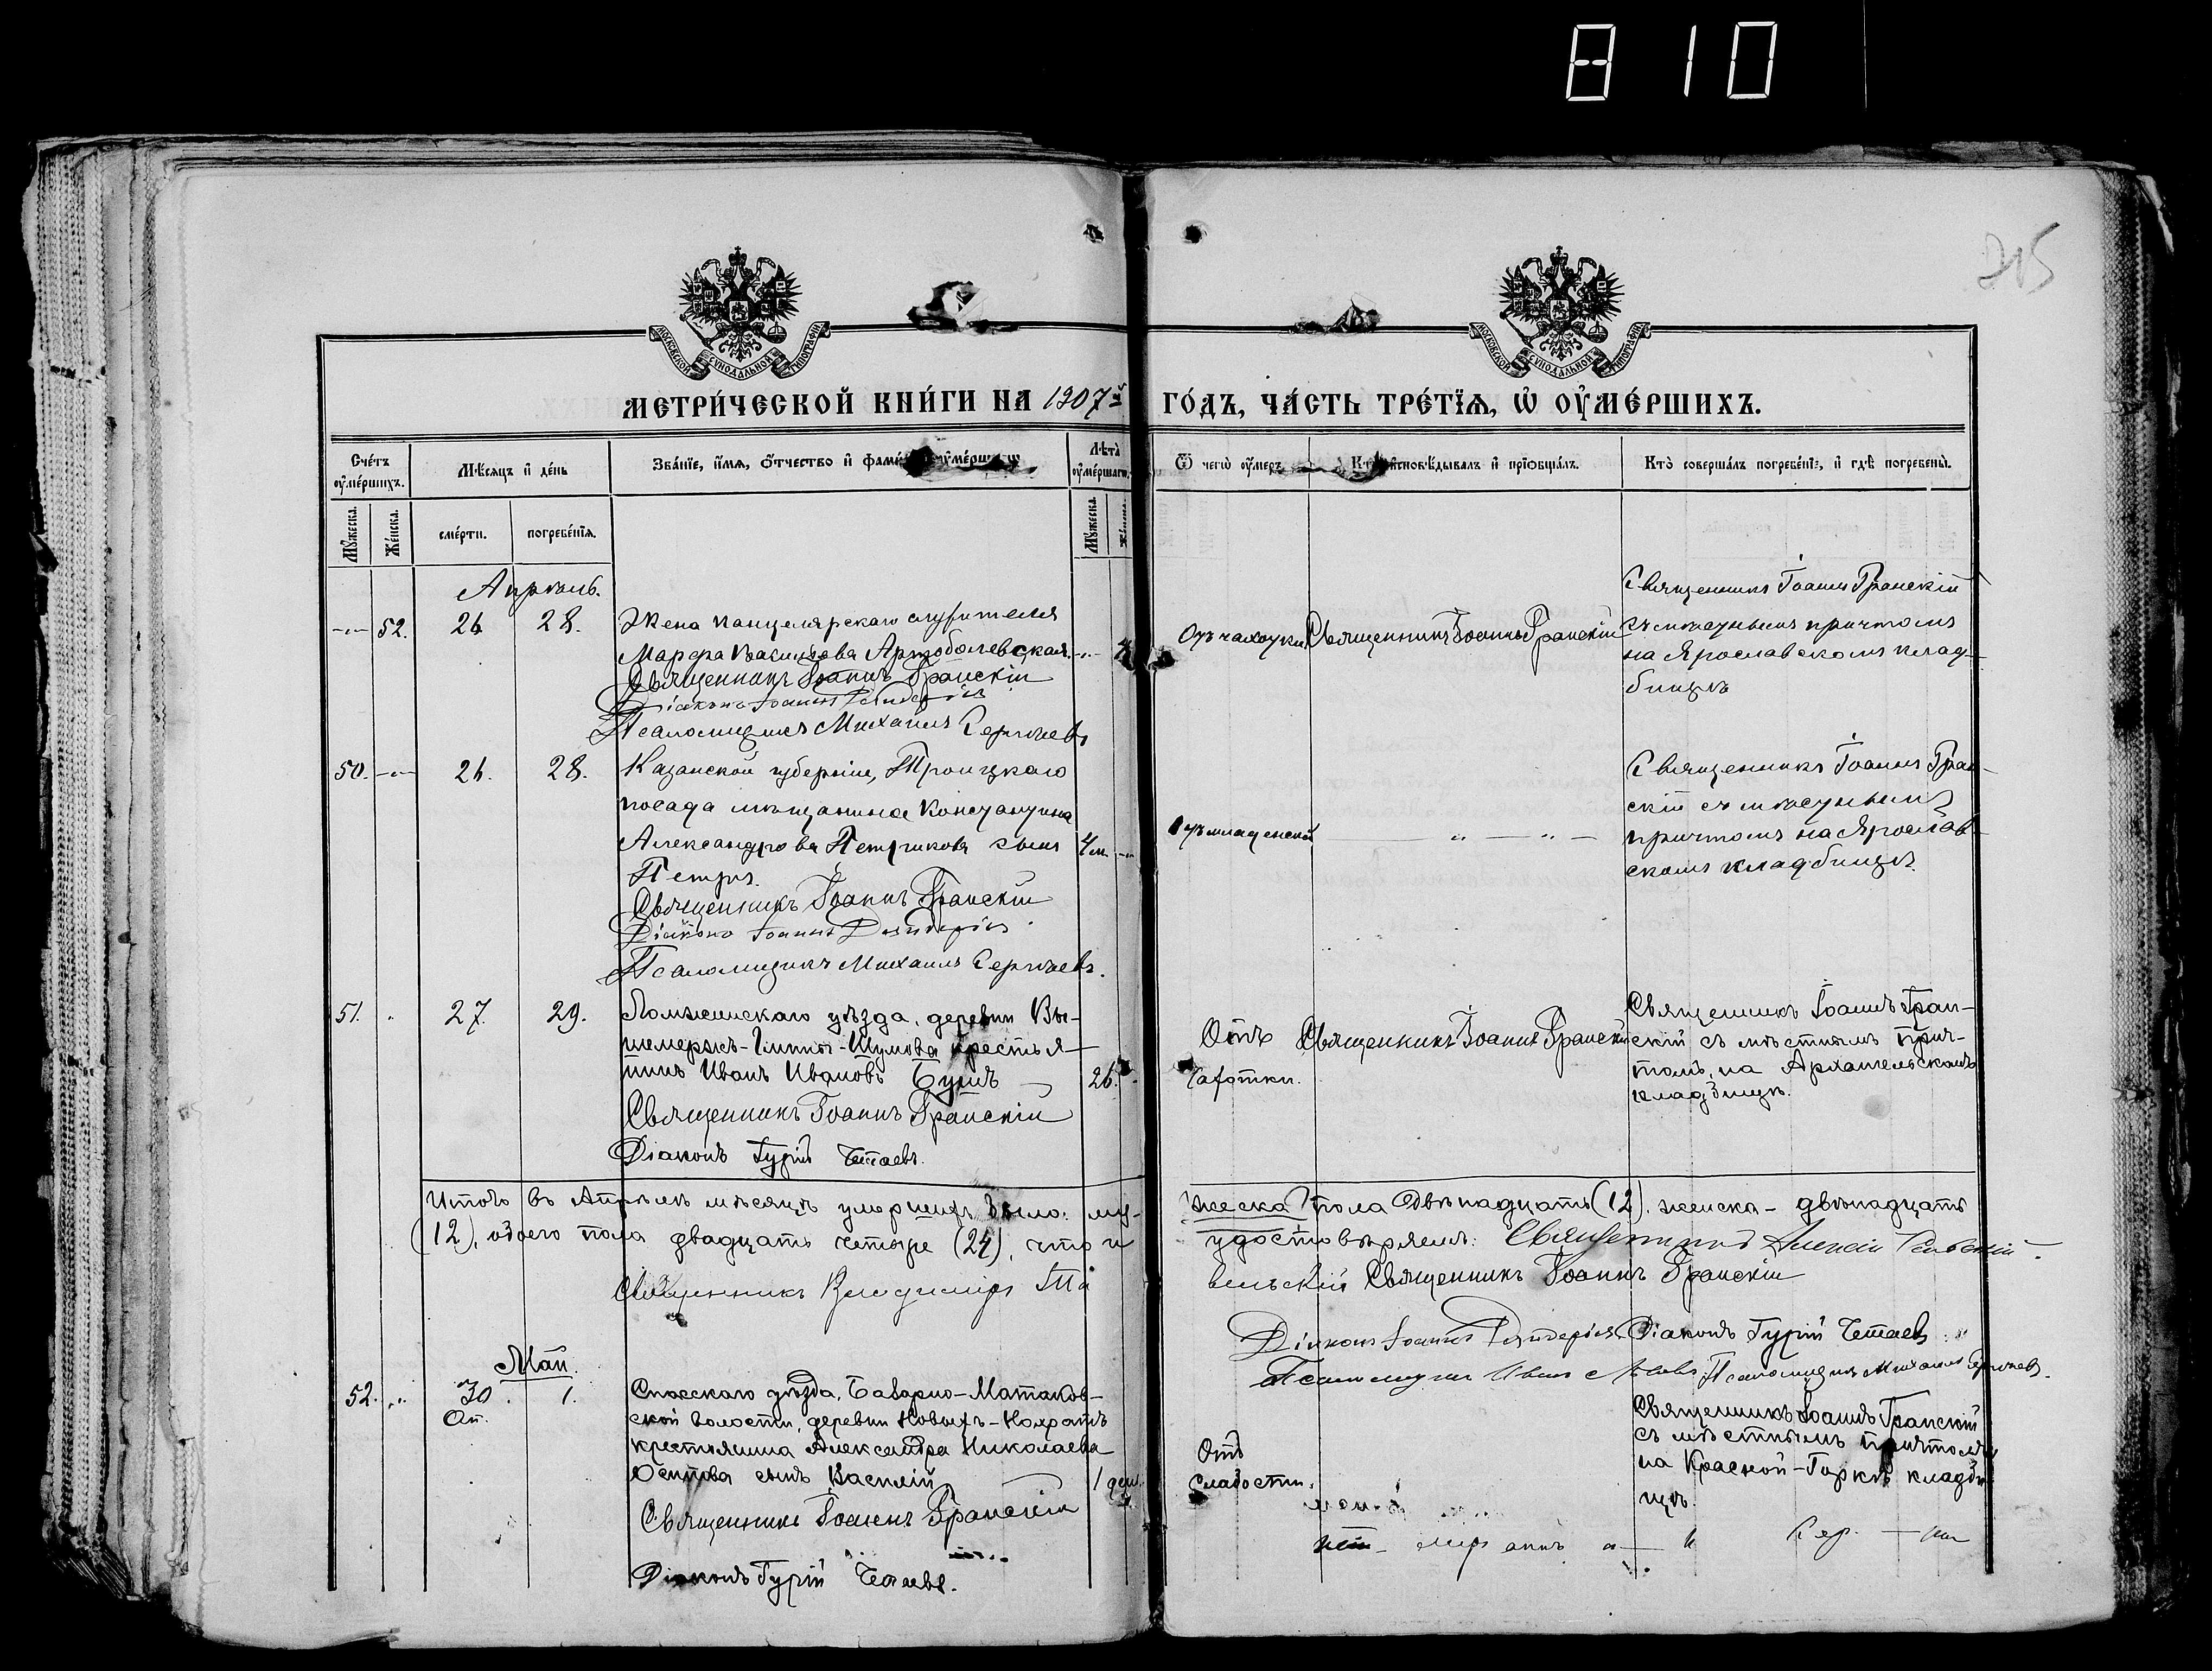 810
215
МОСКОВСКОЙ СѴНОДАЛЬНОЙ ТИПОГРАФІИ
МОСКОВСКОЙ СѴНОДАЛЬНОЙ ТИПОГРАФІИ
МЕТРИ́ЧЕСКОЙ КНИ́ГИ НА 1907й ГО́ДЪ, ЧА́СТЬ ТРЕ́ТІѦ, Ѡ ОУ҆МЕ́РШИХЪ.
Сче́тъ оу҆ме́ршихъ.
Мѣ́сяцъ и҆ де́нь
Зва́нїе, и҆́мѧ, ѻ҆́тчество и҆
Лѣ́та оу҆ме́ршаго.
Ѿ чегѡ̀ оу҆́меръ
и҆сповѣ́дывалъ и҆ прїѡбща́лъ.
Кто̀ соверша́лъ погребе́нїе, и҆ гдѣ̀ погребены̀.
Мꙋ́жеска.
Же́нска.
сме́рти.
погребе́нїѧ.
Мꙋ́жеска.
Апрѣль.
52. 26 28. Жена канцелярскаго служителя
Марфа Артоболевская.
Священникъ Іоаннъ Гранскій
Діаконъ Іоаннъ
Псаломщикъ Михаилъ Сергѣевъ
Отъ чахотки
Священникъ Іоаннъ Гранскій
Священникъ Іоаннъ Гранскій
съ мѣстнымъ причтомъ
на Ярославскомъ клад-
бищѣ
50. 26. 28. Казанской губерніи, Троицкаго
посада мѣщанина Константина
Александрова Петрикова сынъ 4 м.
Петръ.
Священникъ Іоаннъ Гранскій
Діаконъ Іоаннъ
Псаломщикъ Михаилъ Сергѣевъ.
Отъ младенской
Священникъ Іоаннъ Гран-
скій съ мѣстнымъ
причтомъ на Ярослав-
скомъ кладбищѣ.
51. 27. 29. Ломжинскаго уѣзда, деревни Вы-
крестья-
нинъ Иванъ Ивановъ 26.
Священникъ Іоаннъ Гранскій
Діаконъ Гурій Четаевъ.
Отъ
чахотки.
Священникъ Іоаннъ Гранскій
Священникъ Іоаннъ Гран-
скій съ мѣстнымъ прич-
томъ, на Архангельскомъ
кладбищѣ.
Итого въ Апрѣлѣ мѣсяцѣ умершихъ было: му-
жеска пола двѣнадцать (12), женска - двѣнадцать
(12), обоего пола двадцать четыре (24), что и
удостовѣряемъ: Священникъ Алексій
Священникъ Владиміръ
Священникъ Іоаннъ Гранскій
Діаконъ Іоаннъ Діаконъ Гурій Четаевъ
Псаломщикъ Иванъ Псаломщикъ Михаилъ Сергѣевъ.
Май.
52. 30 Ап. 1. Спасскаго уѣзда, Базарно-Матаков-
ской волости, деревни Новыхъ-
крестьянина Александра Николаева
Осипова сынъ Василій 1 дня.
Священникъ Іоаннъ Гранскій
Діаконъ Гурій Четаевъ.
Отъ
слабости.
Священникъ Іоаннъ Гранскій
съ мѣстнымъ причтомъ
на Красной-Горкѣ кладби-
щѣ.